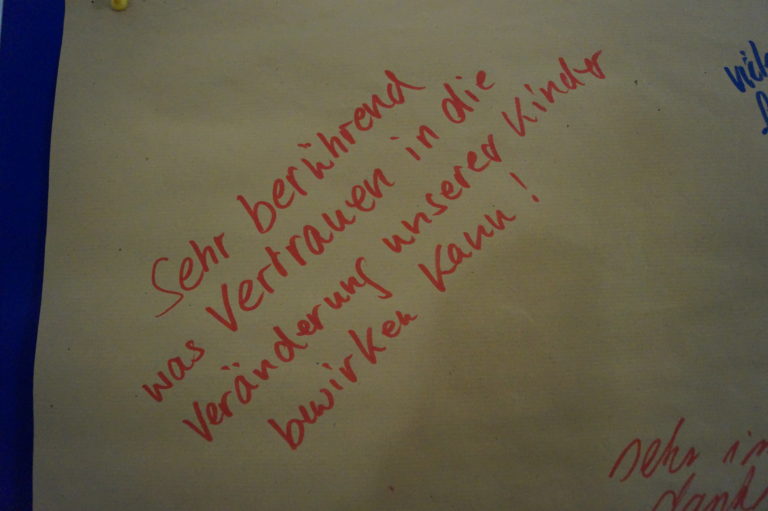 Sehr berührend
was Vertrauen in die
Veränderung unserer Kinder
bewirken kann!
sehr